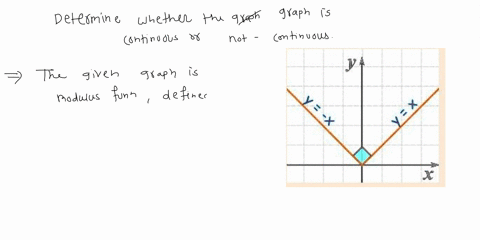 Determine whether the graph is
continuous or not - continuous.
⇒ The given graph is
modulus funn, define
y
y = -x
y = x
x